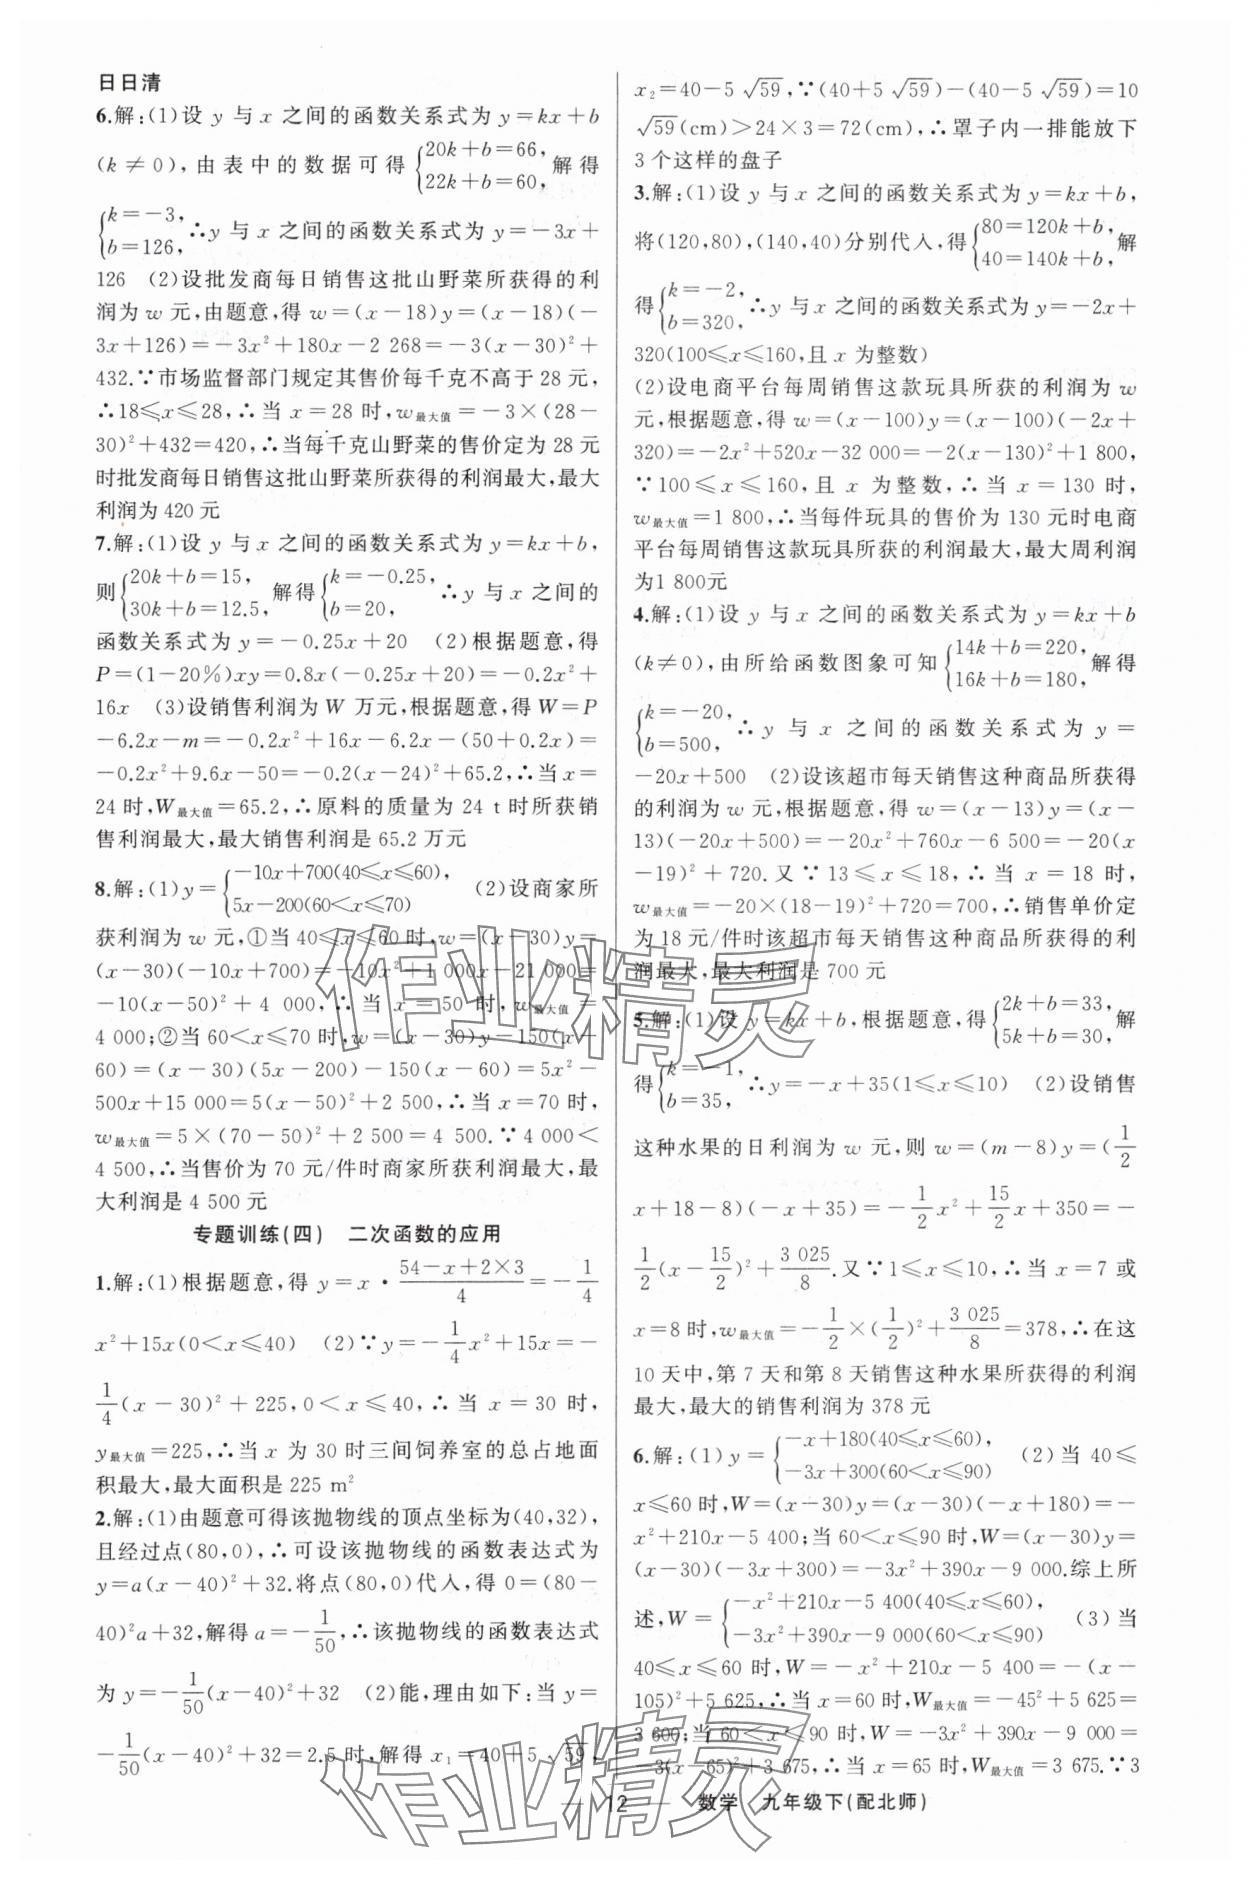 日日清
6.解:(1)设 y 与 x 之间的函数关系式为 y=kx+b
(k≠0),由表中的数据可得{20k+b=66, 22k+b=60,解得
{k=-3, b=126,∴y 与 x 之间的函数关系式为 y=-3x+
126 (2)设批发商每日销售这批山野菜所获得的利
润为 w 元,由题意,得 w=(x-18)y=(x-18)(-
3x+126)=-3x²+180x-2 268=-3(x-30)²+
432.∵市场监督部门规定其售价每千克不高于 28 元,
∴18≤x≤28,∴当 x=28 时,w最大值=-3×(28-
30)²+432=420,∴当每千克山野菜的售价定为 28 元
时批发商每日销售这批山野菜所获得的利润最大,最大
利润为 420 元
7.解:(1)设 y 与 x 之间的函数关系式为 y=kx+b,
则{20k+b=15, 30k+b=12.5,解得{k=-0.25, b=20,∴y 与 x 之间的
函数关系式为 y=-0.25x+20 (2)根据题意,得
P=(1-20%)xy=0.8x(-0.25x+20)=-0.2x²+
16x (3)设销售利润为 W 万元,根据题意,得 W=P
-6.2x-m=-0.2x²+16x-6.2x-(50+0.2x)=
-0.2x²+9.6x-50=-0.2(x-24)²+65.2,∴当 x=
24 时,W最大值=65.2,∴原料的质量为 24 t 时所获销
售利润最大,最大销售利润是 65.2 万元
8.解:(1)y={-10x+700(40≤x≤60), 5x-200(60<x≤70) (2)设商家所
获利润为 w 元,①当 40≤x≤60 时,w=(x-30)y=
(x-30)(-10x+700)=-10x²+1 000x-21 000=
-10(x-50)²+4 000,∴当 x=50 时,w最大值=
4 000;②当 60<x≤70 时,w=(x-30)y-150(x-
60)=(x-30)(5x-200)-150(x-60)=5x²-
500x+15 000=5(x-50)²+2 500,∴当 x=70 时,
w最大值=5×(70-50)²+2 500=4 500.∵4 000<
4 500,∴当售价为 70 元/件时商家所获利润最大,最
大利润是 4 500 元
专题训练(四) 二次函数的应用
1.解:(1)根据题意,得 y=x·(54-x+2×3)/4=-1/4
x²+15x(0<x≤40) (2)∵y=-1/4x²+15x=-
1/4(x-30)²+225,0<x≤40,∴当 x=30 时,
y最大值=225,∴当 x 为 30 时三间饲养室的总占地面
积最大,最大面积是 225 m²
2.解:(1)由题意可得该抛物线的顶点坐标为(40,32),
且经过点(80,0),∴可设该抛物线的函数表达式为
y=a(x-40)²+32.将点(80,0)代入,得 0=(80-
40)²a+32,解得 a=-1/50,∴该抛物线的函数表达式
为 y=-1/50(x-40)²+32 (2)能,理由如下:当 y=
-1/50(x-40)²+32=2.5 时,解得 x₁=40+5√59,
x₂=40-5√59,∵(40+5√59)-(40-5√59)=10
√59(cm)>24×3=72(cm),∴罩子内一排能放下
3 个这样的盘子
3.解:(1)设 y 与 x 之间的函数关系式为 y=kx+b,
将(120,80),(140,40)分别代入,得{80=120k+b, 40=140k+b,解
得{k=-2, b=320,∴y 与 x 之间的函数关系式为 y=-2x+
320(100≤x≤160,且 x 为整数)
(2)设电商平台每周销售这款玩具所获的利润为 w
元,根据题意,得 w=(x-100)y=(x-100)(-2x+
320)=-2x²+520x-32 000=-2(x-130)²+1 800,
∵100≤x≤160,且 x 为整数,∴当 x=130 时,
w最大值=1 800,∴当每件玩具的售价为 130 元时电商
平台每周销售这款玩具所获的利润最大,最大周利润
为1 800元
4.解:(1)设 y 与 x 之间的函数关系式为 y=kx+b
(k≠0),由所给函数图象可知{14k+b=220, 16k+b=180,解得
{k=-20, b=500,∴y 与 x 之间的函数关系式为 y=
-20x+500 (2)设该超市每天销售这种商品所获得
的利润为 w 元,根据题意,得 w=(x-13)y=(x-
13)(-20x+500)=-20x²+760x-6 500=-20(x
-19)²+720.又∵13≤x≤18,∴当 x=18 时,
w最大值=-20×(18-19)²+720=700,∴销售单价定
为 18 元/件时该超市每天销售这种商品所获得的利
润最大,最大利润是 700 元
5.解:(1)设 y=kx+b,根据题意,得{2k+b=33, 5k+b=30,解
得{k=-1, b=35,∴y=-x+35(1≤x≤10) (2)设销售
这种水果的日利润为 w 元,则 w=(m-8)y=(1/2
x+18-8)(-x+35)=-1/2x²+15/2x+350=-
1/2(x-15/2)²+3 025/8.又∵1≤x≤10,∴当 x=7 或
x=8 时,w最大值=-1/2×(1/2)²+3 025/8=378,∴在这
10 天中,第 7 天和第 8 天销售这种水果所获得的利润
最大,最大的销售利润为 378 元
6.解:(1)y={-x+180(40≤x≤60), -3x+300(60<x≤90) (2)当 40≤
x≤60 时,W=(x-30)y=(x-30)(-x+180)=-
x²+210x-5 400;当 60<x≤90 时,W=(x-30)y=
(x-30)(-3x+300)=-3x²+390x-9 000.综上所
述,W={-x²+210x-5 400(40≤x≤60), -3x²+390x-9 000(60<x≤90) (3)当
40≤x≤60 时,W=-x²+210x-5 400=-(x-
105)²+5 625,∴当 x=60 时,W最大值=-45²+5 625=
3 600;当 60<x≤90 时,W=-3x²+390x-9 000=
-3(x-65)²+3 675,∴当 x=65 时,W最大值=3 675.∵3
作业精灵
作业精灵
12 数学 九年级下(配北师)